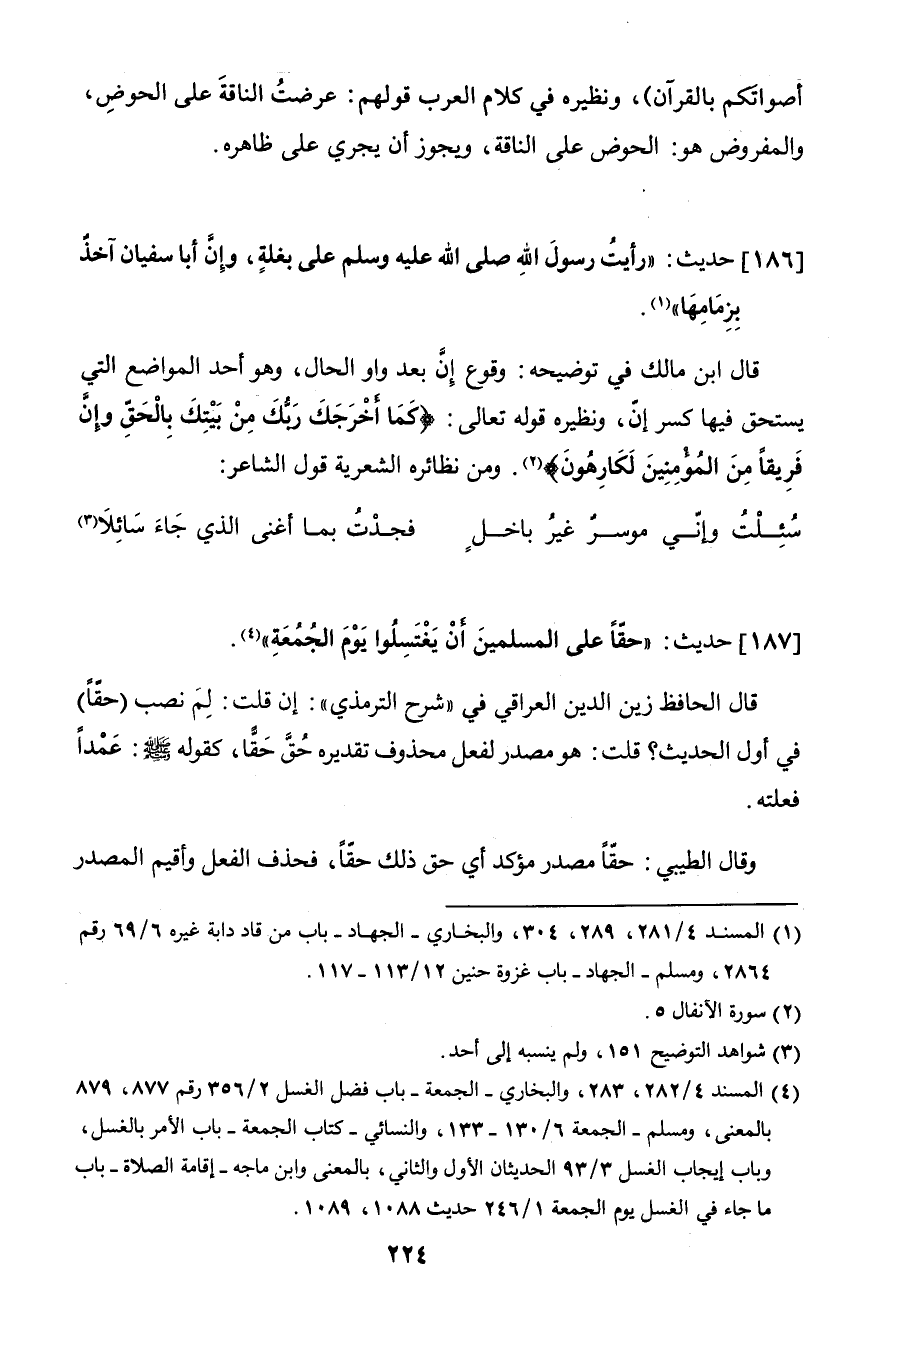 أصواتَكم بالقرآن)، ونظيره في كلام العرب قولهم: عرضتُ الناقةَ على الحوضِ،
والمفروض هو: الحوض على الناقة، ويجوز أن يجري على ظاهره.
[١٨٦] حديث: «رأيتُ رسولَ اللهِ صلى الله عليه وسلم على بغلةٍ، وإنَّ أبا سفيان آخذٌ
بِزِمَامِهَا»(١).
قال ابن مالك في توضيحه: وقوع إنَّ بعد واو الحال، وهو أحد المواضع التي
يستحق فيها كسر إنّ، ونظيره قوله تعالى: ﴿كَمَا أَخْرَجَكَ رَبُّكَ مِنْ بَيْتِكَ بِالْحَقِّ وإنَّ
فَرِيقاً مِنَ المُؤْمِنِينَ لَكَارِهُونَ﴾(٢). ومن نظائره الشعرية قول الشاعر:
سُئِلْتُ وإنّي موسرٌ غيرُ باخلٍ فجدْتُ بما أغنى الذي جَاءَ سَائِلَا(٣)
[١٨٧] حديث: «حقّاً على المسلمينَ أَنْ يَغْتَسِلُوا يَوْمَ الجُمُعَةِ»(٤).
قال الحافظ زين الدين العراقي في «شرح الترمذي»: إن قلت: لِمَ نصب (حقّاً)
في أول الحديث؟ قلت: هو مصدر لفعل محذوف تقديره حُقَّ حَقًّا، كقوله ﷺ: عَمْداً
فعلته.
وقال الطيبي: حقّاً مصدر مؤكد أي حق ذلك حقّاً، فحذف الفعل وأقيم المصدر
(١) المسند ٢٨١/٤، ٢٨٩، ٣٠٤، والبخاري ـ الجهاد ـ باب من قاد دابة غيره ٦٩/٦ رقم
٢٨٦٤، ومسلم ـ الجهاد ـ باب غزوة حنين ١١٣/١٢ ـ ١١٧.
(٢) سورة الأنفال ٥.
(٣) شواهد التوضيح ١٥١، ولم ينسبه إلى أحد.
(٤) المسند ٢٨٢/٤، ٢٨٣، والبخاري ـ الجمعة ـ باب فضل الغسل ٣٥٦/٢ رقم ٨٧٧، ٨٧٩
بالمعنى، ومسلم ـ الجمعة ١٣٠/٦ ـ ١٣٣، والنسائي ـ كتاب الجمعة ـ باب الأمر بالغسل،
وباب إيجاب الغسل ٩٣/٣ الحديثان الأول والثاني، بالمعنى وابن ماجه ـ إقامة الصلاة ـ باب
ما جاء في الغسل يوم الجمعة ٢٤٦/١ حديث ١٠٨٨، ١٠٨٩.
٢٢٤